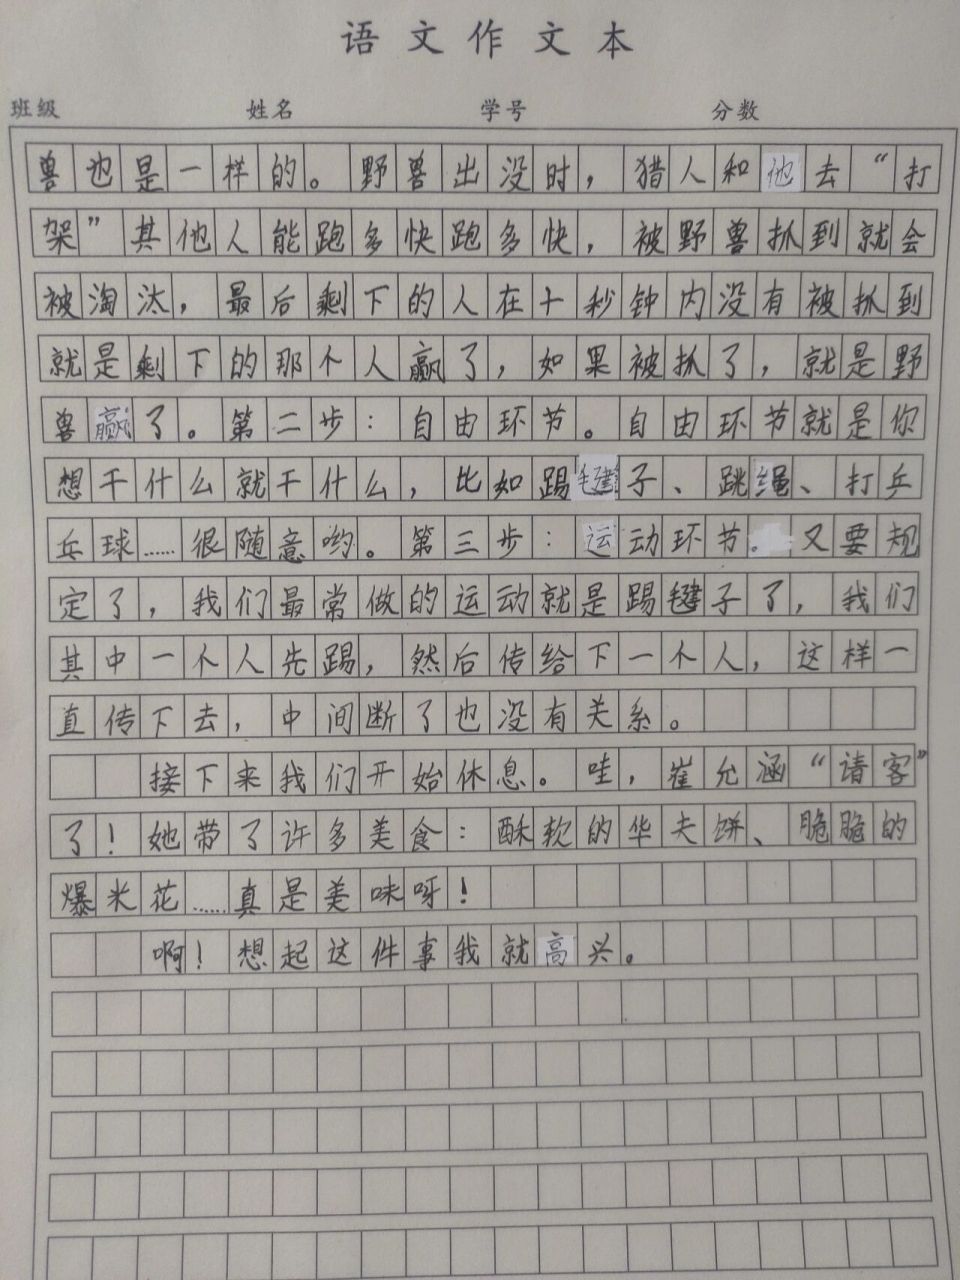 语文作文本
班级 姓名 学号 分数
兽也是一样的。野兽出没时，猎人和他去“打
架”其他人能跑多快跑多快，被野兽抓到就会
被淘汰，最后剩下的人在十秒钟内没有被抓到
就是剩下的那个人赢了，如果被抓了，就是野
兽赢了。第二步：自由环节。自由环节就是你
想干什么就干什么，比如踢毽子、跳绳、打乒
乓球……很随意哟。第三步：运动环节。又要规
定了，我们最常做的运动就是踢毽子了，我们
其中一个人先踢，然后传给下一个人，这样一
直传下去，中间断了也没有关系。
接下来我们开始休息。哇，崔允涵“请客”
了！她带了许多美食：酥软的华夫饼、脆脆的
爆米花……真是美味呀！
啊！想起这件事我就高兴。